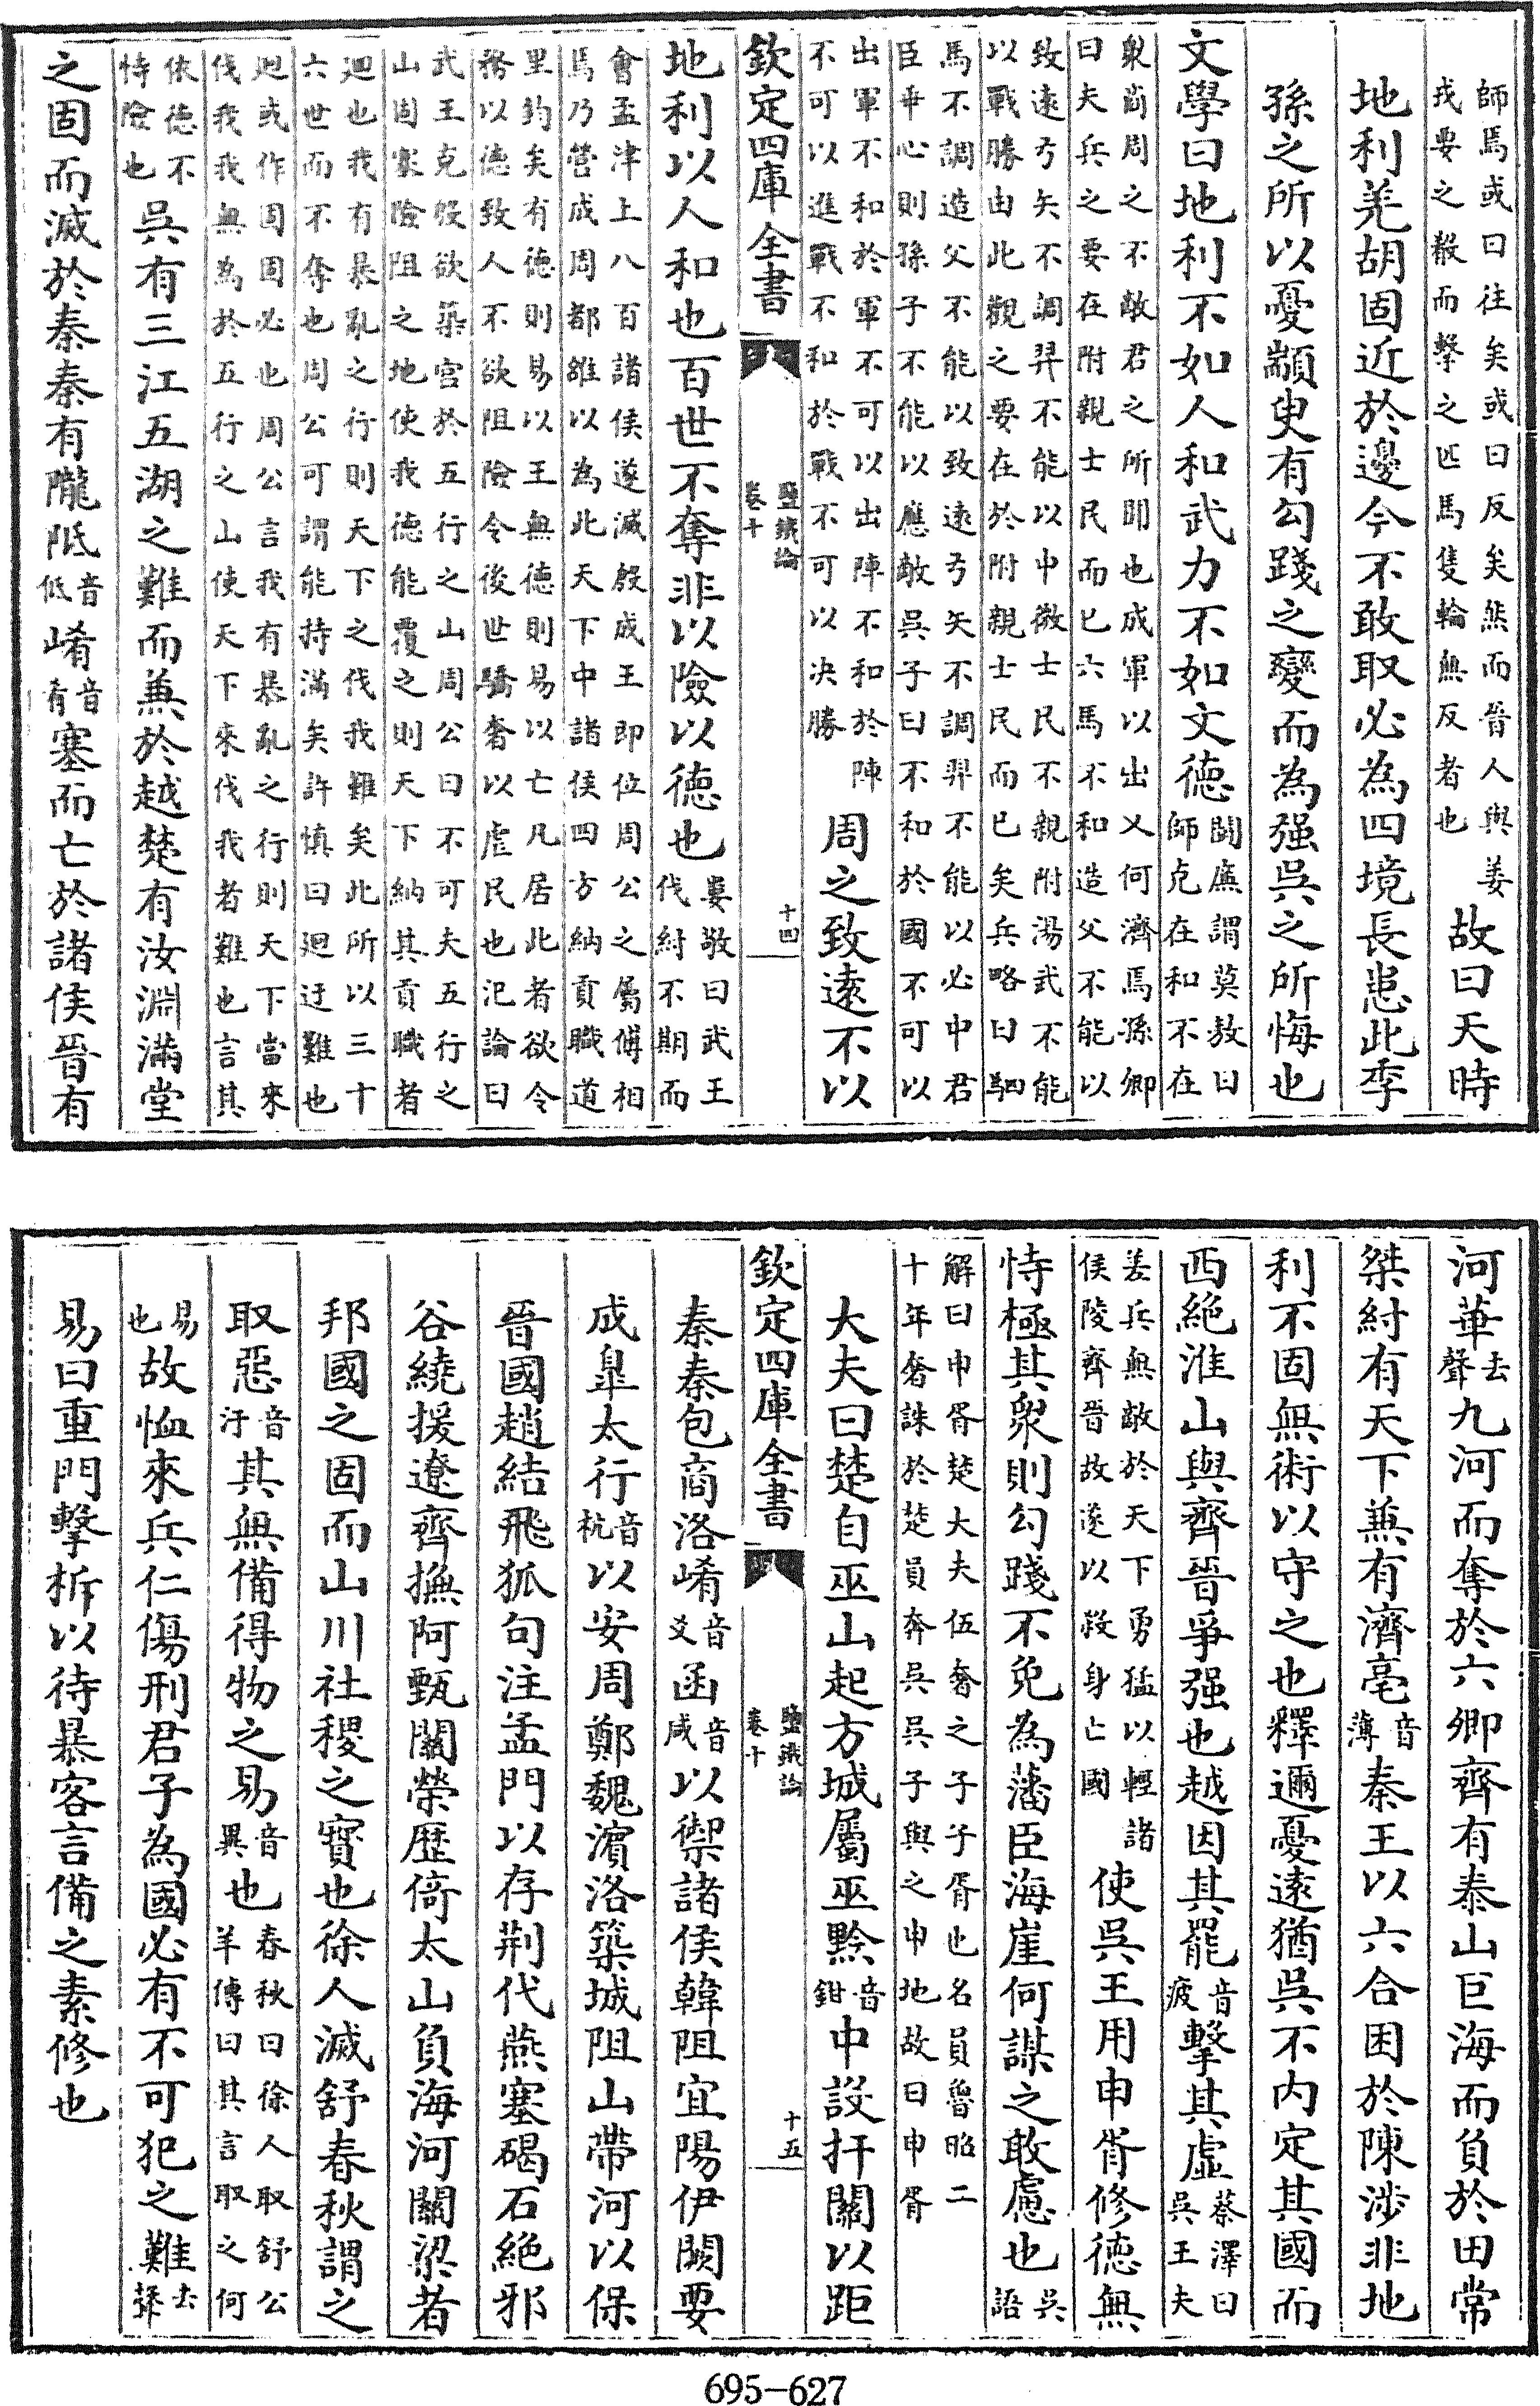 師焉或曰往矣或曰反矣然而晉人與姜戎要之殽而擊之匹馬隻輪無反者也故曰天時
地利羌胡固近於邊今不敢取必為四境長患此季
孫之所以憂顓臾有勾踐之變而為强吳之所悔也
文學曰地利不如人和武力不如文德鬭廉謂莫敖曰師克在和不在
衆商周之不敵君之所聞也成軍以出乂何濟焉孫卿
曰夫兵之要在附親士民而已六馬不和造父不能以
致遠弓矢不調羿不能以中微士民不親附湯武不能
以戰勝由此觀之要在於附親士民而已矣兵略曰駟
馬不調造父不能以致遠弓矢不調羿不能以必中君
臣乖心則孫子不能以應敵吳子曰不和於國不可以
出軍不和於軍不可以出陣不和於陣
不可以進戰不和於戰不可以决勝周之致遠不以
欽定四庫全書
鹽鐵論
卷十
十四
地利以人和也百世不奪非以險以德也婁敬曰武王伐紂不期而
會孟津上八百諸侯遂滅殷成王即位周公之屬傅相
焉乃營成周都雒以為此天下中諸侯四方納貢職道
里鈞矣有德則易以王無德則易以亡凡居此者欲令
務以德致人不欲阻險令後世驕奢以虐民也汜論曰
武王克殷欲築宫於五行之山周公曰不可夫五行之
山固塞險阻之地使我德能覆之則天下納其貢職者
廻也我有暴亂之行則天下之伐我難矣此所以三十
六世而不奪也周公可謂能持滿矣許慎曰廻迂難也
廻或作固固必也周公言我有暴亂之行則天下當來
伐我我無為於五行之山使天下來伐我者難也言其
依德不恃險也吳有三江五湖之難而兼於越楚有汝淵滿堂
之固而滅於秦秦有隴阺音低崤音肴塞而亡於諸侯晉有
河華去聲九河而奪於六卿齊有泰山巨海而負於田常
桀紂有天下兼有濟亳音薄秦王以六合困於陳涉非地
利不固無術以守之也釋邇憂遠猶吳不内定其國而
西絶淮山與齊晉爭强也越因其罷音疲擊其虛蔡澤曰吳王夫
差兵無敵於天下勇猛以輕諸
侯陵齊晉故遂以殺身亡國使吳王用申胥修德無
恃極其衆則勾踐不免為藩臣海崖何謀之敢慮也吳語
解曰申胥楚大夫伍奢之子子胥也名員魯昭二
十年奢誅於楚員奔吳吳子與之申地故曰申胥
大夫曰楚自巫山起方城屬巫黔音鉗中設扞關以距
欽定四庫全書
鹽鐵論
卷十
十五
秦秦包商洛崤音爻函音咸以禦諸侯韓阻宜陽伊闕要
成臯太行音杭以安周鄭魏濱洛築城阻山帶河以保
晉國趙結飛狐句注孟門以存荆代燕塞碣石絶邪
谷繞援遼齊撫阿甄關榮歴倚太山負海河關梁者
邦國之固而山川社稷之寶也徐人滅舒春秋謂之
取惡音汙其無備得物之易音異也春秋曰徐人取舒公羊傳曰其言取之何
易也故恤來兵仁傷刑君子為國必有不可犯之難去聲
易曰重門擊柝以待暴客言備之素修也
695-627